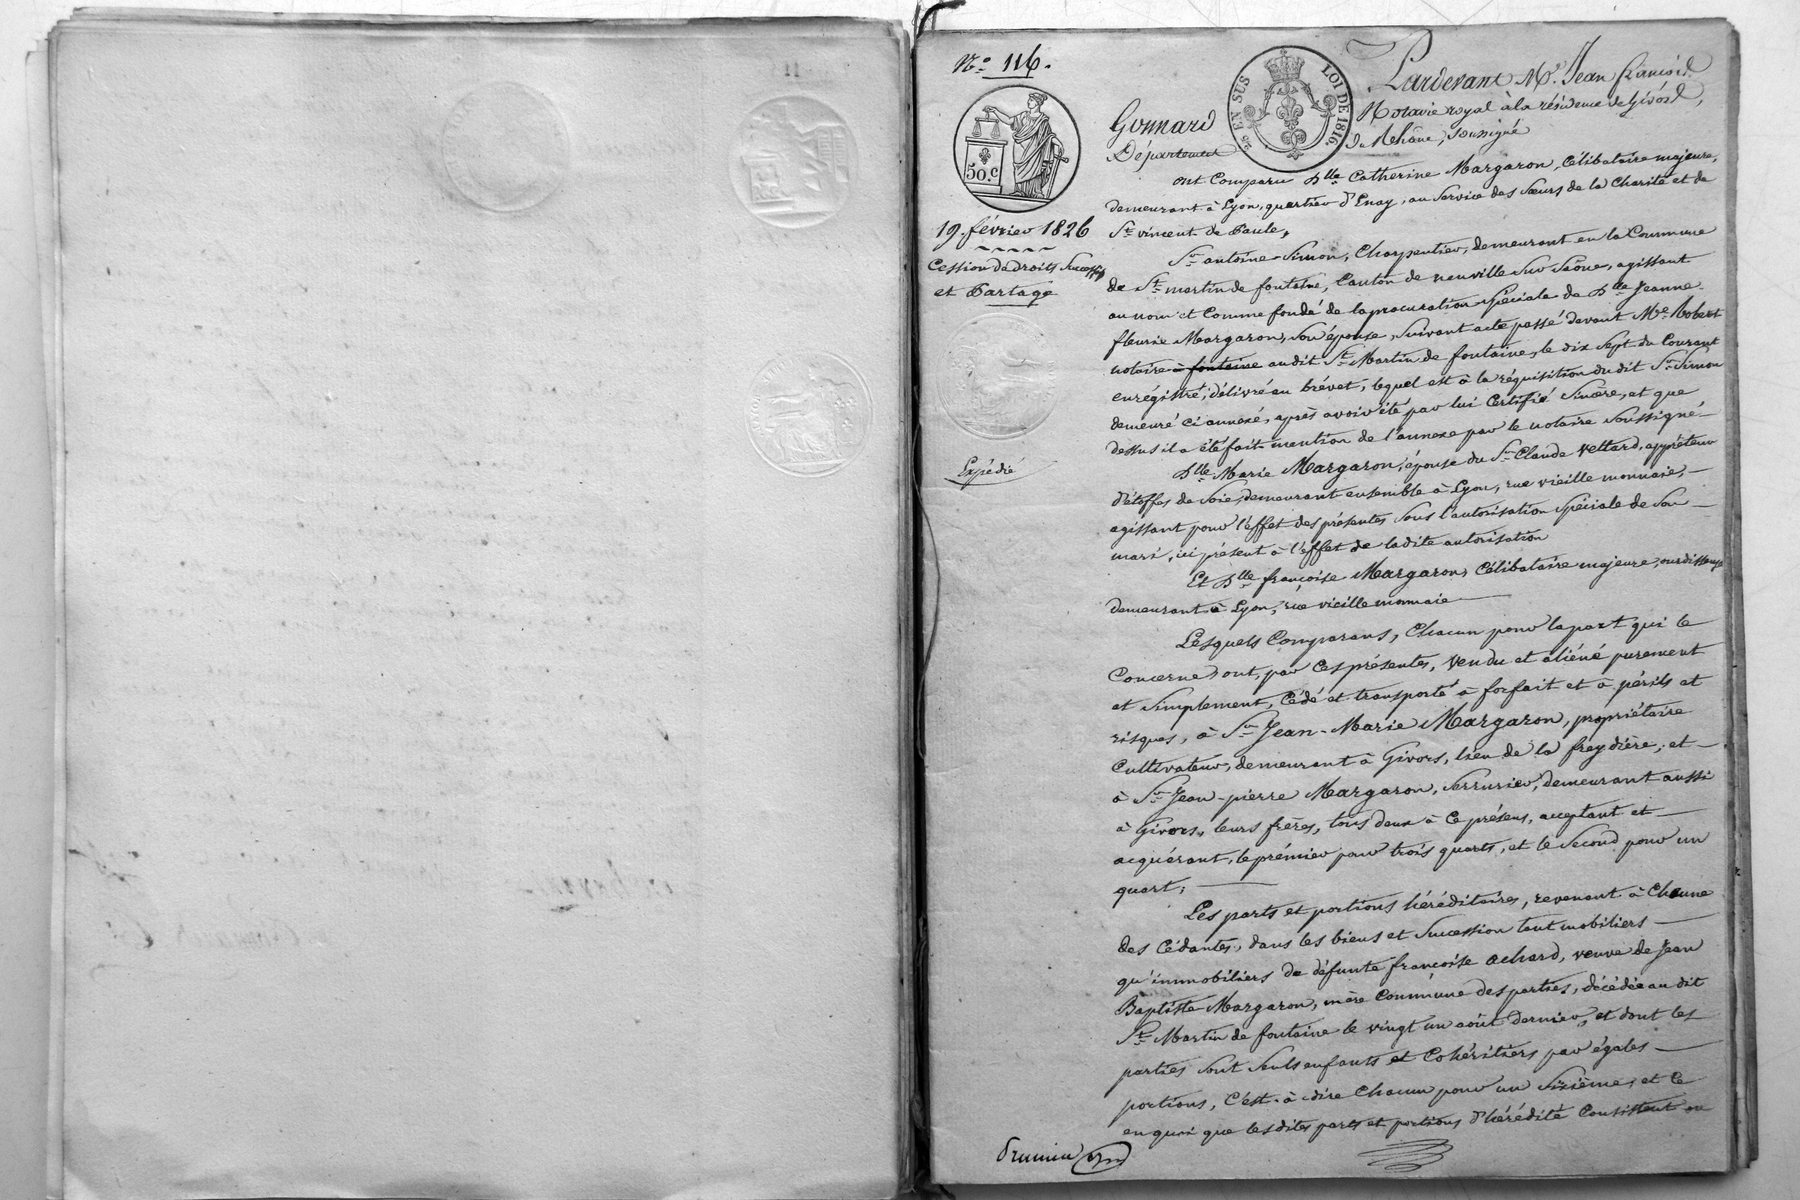 N.o 116.
50.c
25 EN SUS
LOI DE 1816.
19. février 1826
Cession de droits Successifs
et Partage
Expédié
Pardevant M.e Jean François
Gonnard Notaire royal à la résidence de Givors,
Département du Rhône, soussigné
ont Comparu D.lle Catherine Margaron, Célibataire majeure,
demeurant à Lyon, quartier d'Enay, au Service des Sœurs de la Charité et de
S.t vincent de Paule,
S.r antoine Simon, Charpentier, demeurant en la Commune
de S.t martin de fontaine, Canton de neuville Sur Saône, agissant
au nom et Comme fondé de la procuration spéciale de D.lle Jeanne
fleurie Margaron, Son épouse, Suivant acte passé devant M.e Robert
notaire à fontaine audit S.t Martin de fontaine, le dix Sept du Courant
enrégistré, délivré en brévet, lequel est à la réquisition du dit S.r Simon
demeuré ci annexé, après avoir été par lui Certifié Sincère, et que
dessus il a été fait mention de l'annexe par le notaire Soussigné
D.lle Marie Margaron, épouse du S.r Claude Vettard, appréteur
d'étoffes de Soie, demeurant ensemble à Lyon, rue vieille monnaie,
agissant pour l'effet des présentes Sous l'autorisation Spéciale de Son
mari, ici présent à l'effet de ladite autorisation
Et D.lle françoise Margaron, Célibataire majeure, ourdisseuse
demeurant à Lyon, rue vieille monnaie
Lesquels Comparans, Chacun pour la part qui le
Concerne ont, par Ces présentes, vendu et aliéné purement
et Simplement, Cédé et transporté à forfait et à périls et
risques, à S.r Jean-Marie Margaron, propriétaire
Cultivateur, demeurant à Givors, lieu de la freydière, et
à S.r Jean-pierre Margaron, Serrurier, demeurant aussi
à Givors, leurs frères, tous deux à Ce présens, acceptant et
acquérant, le prémier pour trois quarts, et le Second pour un
quart;
Les parts et portions héréditaires, revenant à Chacune
des Cédantes, dans les biens et Succession tant mobiliers
qu'immobiliers de défunte françoise achard, veuve de Jean
Baptiste Margaron, mère Commune des parties, décédée au dit
S.t Martin de fontaine le vingt un août dernier, et dont les
parties Sont Seuls enfants et Cohéritiers par égales
portions, C'est-à-dire Chacun pour un Sixième, et Ce
en quoi que les dites parts et portions d'hérédité Consistent ou